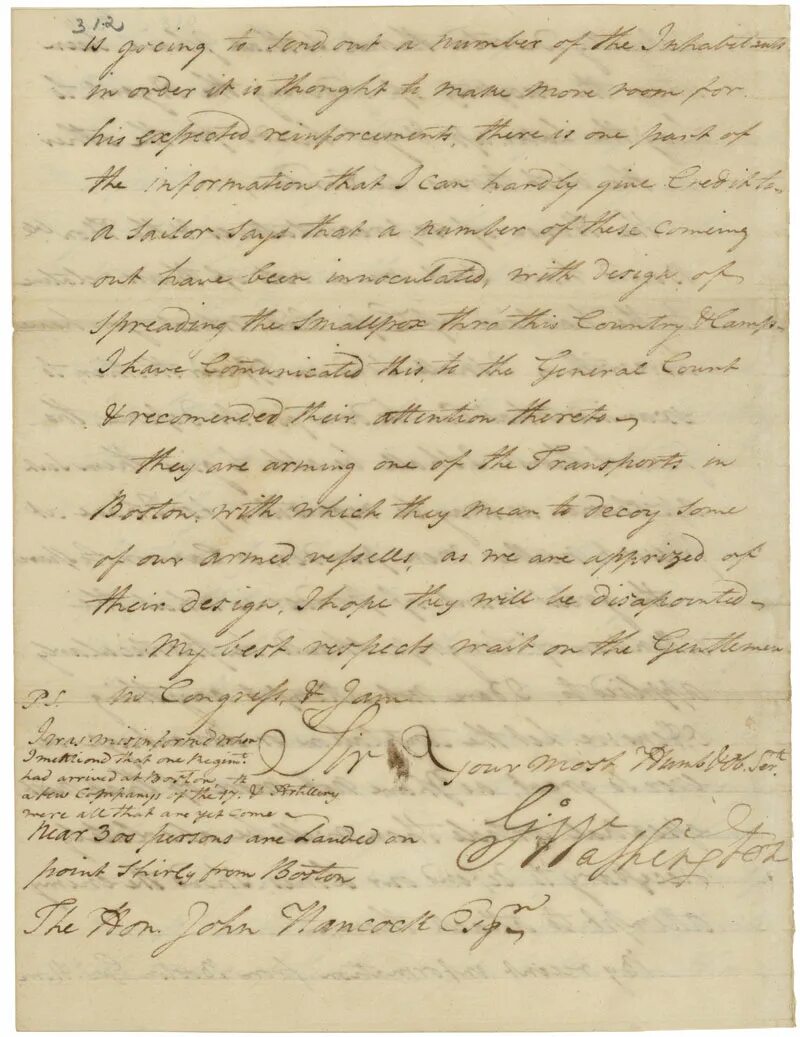 312
is goeing to send out a number of the Inhabitants
in order it is thought to make more room for
his expected reinforcements, there is one part of
the information that I can hardly give Credit to.
a Sailor Says that a number of these comeing
out have been innoculated, with design of
Spreading the Smallpox thro' this Country & Camp.
I have comunicated this to the General Court
& recomended their attention thereto.
they are arming one of the Transports in
Boston, with which they mean to decoy Some
of our armed vessells, as we are apprized of
their design, I hope they will be disapointed.
My best respects wait on the Gentlemen
in Congress, & I am
Sir
your most Humb & Ob. Sert.
G:Washington
P.S.
I was misinformed when
I mentiond that one Regimt.
had arrived at Boston
a few Companys of the 17th. & Artillery
were all that are yet Come
Near 300 persons are Landed on
point Shirly from Boston
The Hon. John Hancock Esqr.